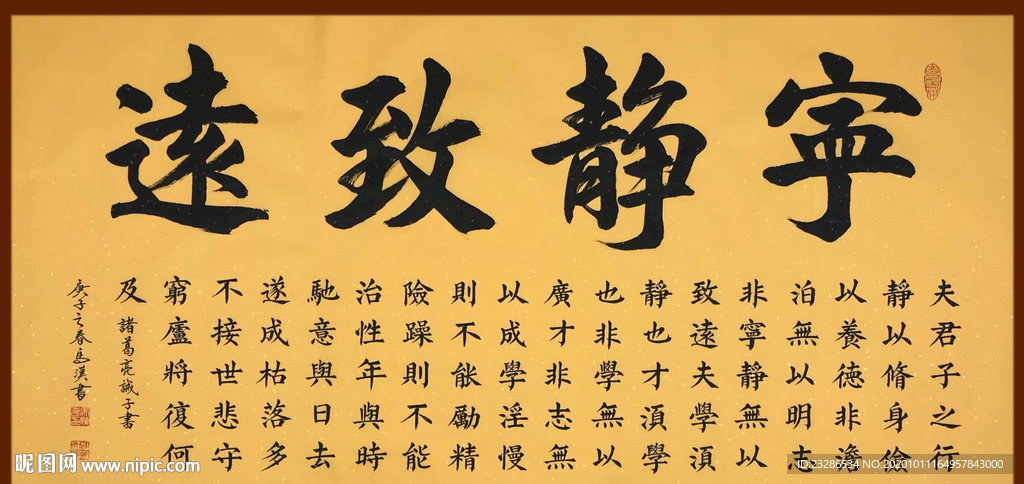 寧靜致遠
夫君子之行
靜以脩身儉
以養德非澹
泊無以明志
非寧靜無以
致遠夫學須
靜也才須學
也非學無以
廣才非志無
以成學淫慢
則不能勵精
險躁則不能
治性年與時
馳意與日去
遂成枯落多
不接世悲守
窮廬將復何
及 諸葛亮誡子書
庚子之春馬漢書
昵图网 www.nipic.com
ID:23286534 NO:20201011164957843000